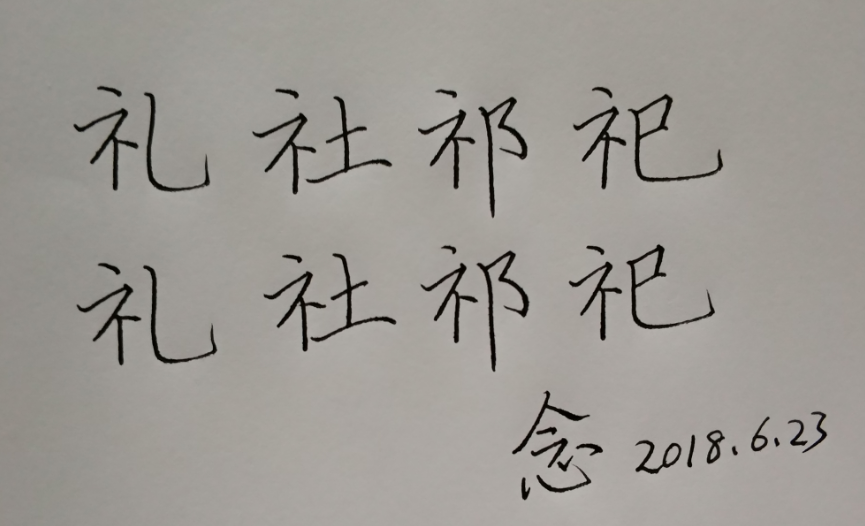 礼社祁祀
礼社祁祀
念 2018.6.23